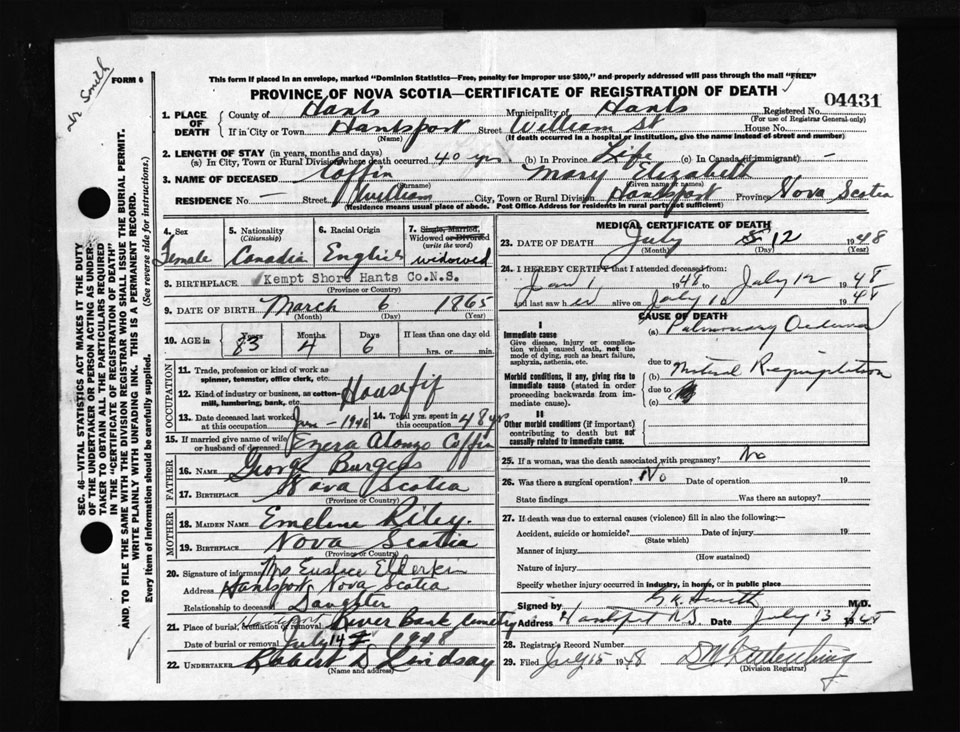 Dr Smith
FORM 6
This form if placed in an envelope, marked "Dominion Statistics—Free, penalty for improper use $300," and properly addressed will pass through the mail "FREE"
PROVINCE OF NOVA SCOTIA—CERTIFICATE OF REGISTRATION OF DEATH
04431
1. PLACE OF DEATH
County of Hants Municipality of Hants Registered No.
(For use of Registrar General only)
If in City or Town Hantsport Street William St House No.
(Name) (If death occurred in a hospital or institution, give the name instead of street and number)
2. LENGTH OF STAY (in years, months and days)
(a) In City, Town or Rural Division where death occurred 40 yrs (b) In Province Life (c) In Canada (if immigrant) —
3. NAME OF DECEASED Coffin Mary Elizabeth
(Surname) (Given name or names)
RESIDENCE No. — Street William City, Town or Rural Division Hantsport Province Nova Scotia
(Residence means usual place of abode. Post Office Address for residents in rural parts not sufficient)
4. Sex Female
5. Nationality (Citizenship) Canadia
6. Racial Origin English
7. Single, Married, Widowed or Divorced (write the word) widowed
8. BIRTHPLACE Kempt Shore Hants Co.N.S.
(Province or Country)
9. DATE OF BIRTH March 6 1865
(Month) (Day) (Year)
10. AGE in Years 83 Months 4 Days 6 If less than one day old
hrs. or min.
OCCUPATION
11. Trade, profession or kind of work as spinner, teamster, office clerk, etc.
12. Kind of industry or business, as cotton-mill, lumbering, bank, etc. Housefif
13. Date deceased last worked at this occupation June - 1946 14. Total yrs. spent in this occupation 48 yrs
15. If married give name of wife or husband of deceased Ezera Alonzo Coffin
FATHER
16. NAME George Burgess
17. BIRTHPLACE Nova Scotia
(Province or Country)
MOTHER
18. MAIDEN NAME Emeline Riley.
19. BIRTHPLACE Nova Scotia
(Province or Country)
20. Signature of informant Mrs Eustace Elderkin
Address Hantsport Nova Scotia
Relationship to deceased Daughter
21. Place of burial, cremation or removal River Bank Cemetry
Date of burial or removal July 14 1948
22. UNDERTAKER Robert D Lindsay
(Name and address)
MEDICAL CERTIFICATE OF DEATH
23. DATE OF DEATH July 12 1948
(Month) (Day) (Year)
24. I HEREBY CERTIFY that I attended deceased from:
Jan 1 1948 to July 12 1948
and last saw her alive on July 10 1948
CAUSE OF DEATH
I
Immediate cause
Give disease, injury or complication which caused death, not the mode of dying, such as heart failure, asphyxia, asthenia, etc.
(a) Pulmonary Oedema
due to
Morbid conditions, if any, giving rise to immediate cause (stated in order proceeding backwards from immediate cause).
(b) Mitral Regurgitation
due to
(c)
II
Other morbid conditions (if important) contributing to death but not causally related to immediate cause.
25. If a woman, was the death associated with pregnancy? No
26. Was there a surgical operation? No Date of operation 19
State findings Was there an autopsy?
27. If death was due to external causes (violence) fill in also the following:—
Accident, suicide or homicide? Date of injury 19
(State which)
Manner of injury
(How sustained)
Nature of injury
Specify whether injury occurred in industry, in home, or in public place
Signed by G.K. Smith M.D.
Address Hantsport N.S. Date July 13 1948
28. Registrar's Record No.
29. Filed July 15 1948
(Division Registrar)
SEC. 46—VITAL STATISTICS ACT MAKES IT THE DUTY
OF THE UNDERTAKER OR PERSON ACTING AS UNDER-
TAKER TO OBTAIN ALL THE PARTICULARS REQUIRED
IN THE "CERTIFICATE OF REGISTRATION OF DEATH"
AND TO FILE THE SAME WITH THE DIVISION REGISTRAR WHO SHALL ISSUE THE BURIAL PERMIT.
WRITE PLAINLY WITH UNFADING INK. THIS IS A PERMANENT RECORD.
Every item of Information should be carefully supplied. (See reverse side for instructions.)